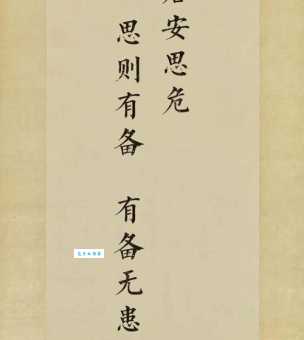 居安思危
思则有备 有备无患